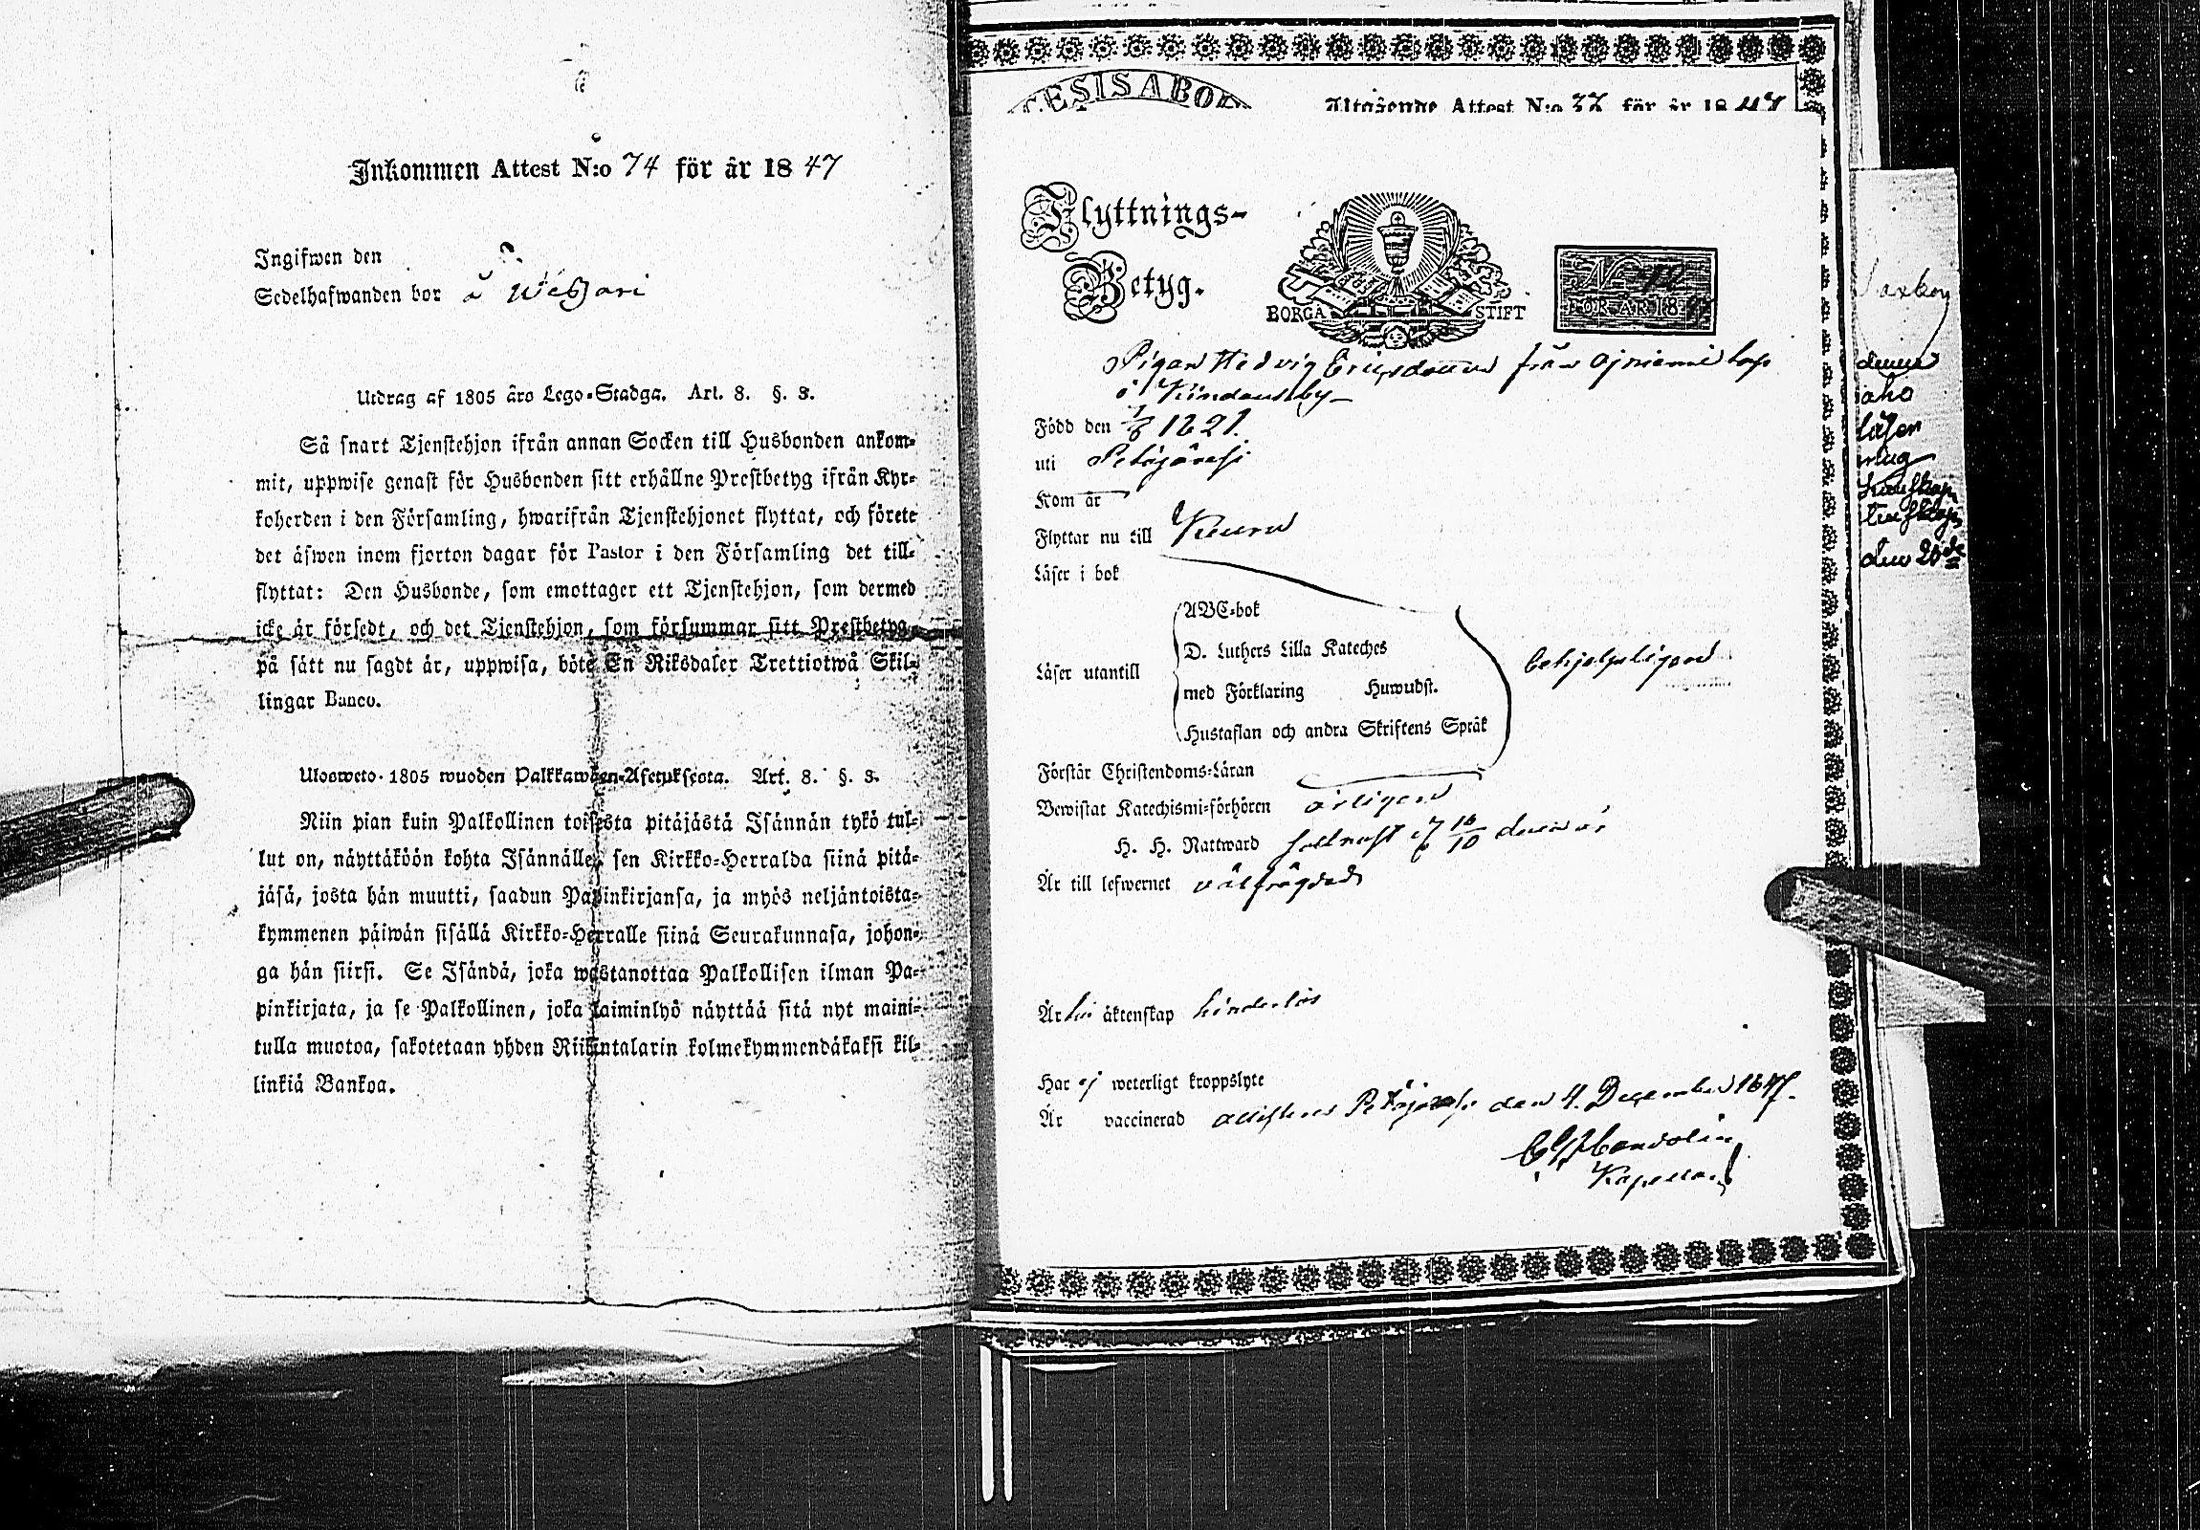 Inkommen Attest N:o 74 för år 1847
Ingifwen den
Sedelhafwanden bor å
Utdrag af 1805 års Lego-Stadga. Art. 8. §. 3.
Så snart Tjenstehjon ifrån annan Socken till Husbonden ankom-
mit, uppwise genast för Husbonden sitt erhållne Prestbetyg ifrån Kyr-
koherden i den Församling, hwarifrån Tjenstehjonet flyttat, och förete
det äfwen inom fjorton dagar för Pastor i den Församling det till-
flyttat: Den Husbonde, som emottager ett Tjenstehjon, som dermed
icke är försedt, och det Tjenstehjon, som försummar sitt Prestbetyg
på sätt nu sagdt är, uppwisa, böte En Riksdaler Trettiotwå Skil-
lingar Banco.
Ulosweto 1805 wuoden Palkkawäen-Asetuksesta. Art. 8. §. 3.
Niin pian kuin Palkollinen toisesta pitäjästä Isännän tykö tul-
lut on, näyttäköön kohta Isännälle, sen Kirkko-Herralda siinä pitä-
jäsä, josta hän muutti, saadun Papinkirjansa, ja myös neljäntoista-
kymmenen päiwän sisällä Kirkko-Herralle siinä Seurakunnasa, johon-
ga hän siirsi. Se Isändä, joka wastanottaa Palkollisen ilman Pa-
pinkirjata, ja se Palkollinen, joka laiminlyö näyttää sitä nyt maini-
tulla muotoa, sakotetaan yhden Riikintalarin kolmekymmendäkaksi kil-
linkiä Bankoa.
Utgående Attest N:o 77 för år 1847
Flyttnings-
Betyg.
BORGÅ STIFT
FÖR ÅR 18
Pigan Hedvig Ericsdotter från
Född den 1821.
uti Petäjävesi
Kom år
Flyttar nu till Keuru
Läser i bok
Läser utantill
ABC-bok
D. Luthers Lilla Kateches
med Förklaring Huwudst.
Hustaflan och andra Skriftens Språk
behjelpligen
Förstår Christendoms-Läran
Bewistat Katechismi-förhören årligen
H. H. Nattward
Är till lefwernet välfrägdad
Är till äktenskap hinderlös
Har ej weterligt kroppslyte
Är vaccinerad attesteras Petäjävesi den 4. December 1847.
Kapellan